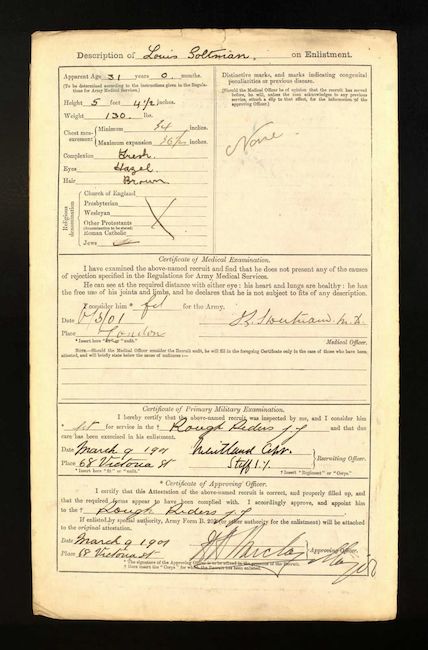 Description of Louis Goltman. on Enlistment.
Apparent Age 31 years 0 months.
(To be determined according to the instructions given in the Regulations for Army Medical Services.)
Height 5 feet 4½ inches.
Weight 130 lbs.
Chest measurement { Minimum 34 inches.
Maximum expansion inches.
Complexion Fresh
Eyes Hazel
Hair Brown
Religious denomination
Church of England
Presbyterian
Wesleyan
Other Protestants
(denomination to be stated)
Roman Catholic
Jews
Distinctive marks, and marks indicating congenital peculiarities or previous disease.
(Should the Medical Officer be of opinion that the recruit has served before, he will, unless the man acknowledges to any previous service, attach a slip to that effect, for the information of the approving Officer.)
None
Certificate of Medical Examination.
I have examined the above-named recruit and find that he does not present any of the causes
of rejection specified in the Regulations for Army Medical Services.
He can see at the required distance with either eye: his heart and lungs are healthy: he has
the free use of his joints and limbs, and he declares that he is not subject to fits of any description.
I consider him * fit for the Army.
Date /3/01
Place London
* Insert here "fit" or "unfit."
Medical Officer.
NOTE.—Should the Medical Officer consider the Recruit unfit, he will fill in the foregoing Certificate only in the case of those who have been attested, and will briefly state below the causes of unfitness :—
Certificate of Primary Military Examination.
I hereby certify that the above-named recruit was inspected by me, and I consider him
* fit for service in the † Rough Riders I.Y and that due
care has been exercised in his enlistment.
Date March 9 1901
Place 68 Victoria St
Recruiting Officer.
* Insert here "fit" or "unfit."
† Insert "Regiment" or "Corps."
* Certificate of Approving Officer.
I certify that this Attestation of the above-named recruit is correct, and properly filled up, and
that the required forms appear to have been complied with. I accordingly approve, and appoint him
to the † Rough Riders I.Y
If enlisted by special authority, Army Form B. 203 (or other authority for the enlistment) will be attached
to the original attestation.
Date March 9 1901
Place 68 Victoria St
Barclay Major
Approving Officer.
* The signature of the Approving Officer is to be affixed in the presence of the Recruit.
† Here insert the "Corps" for which the Recruit has been enlisted.